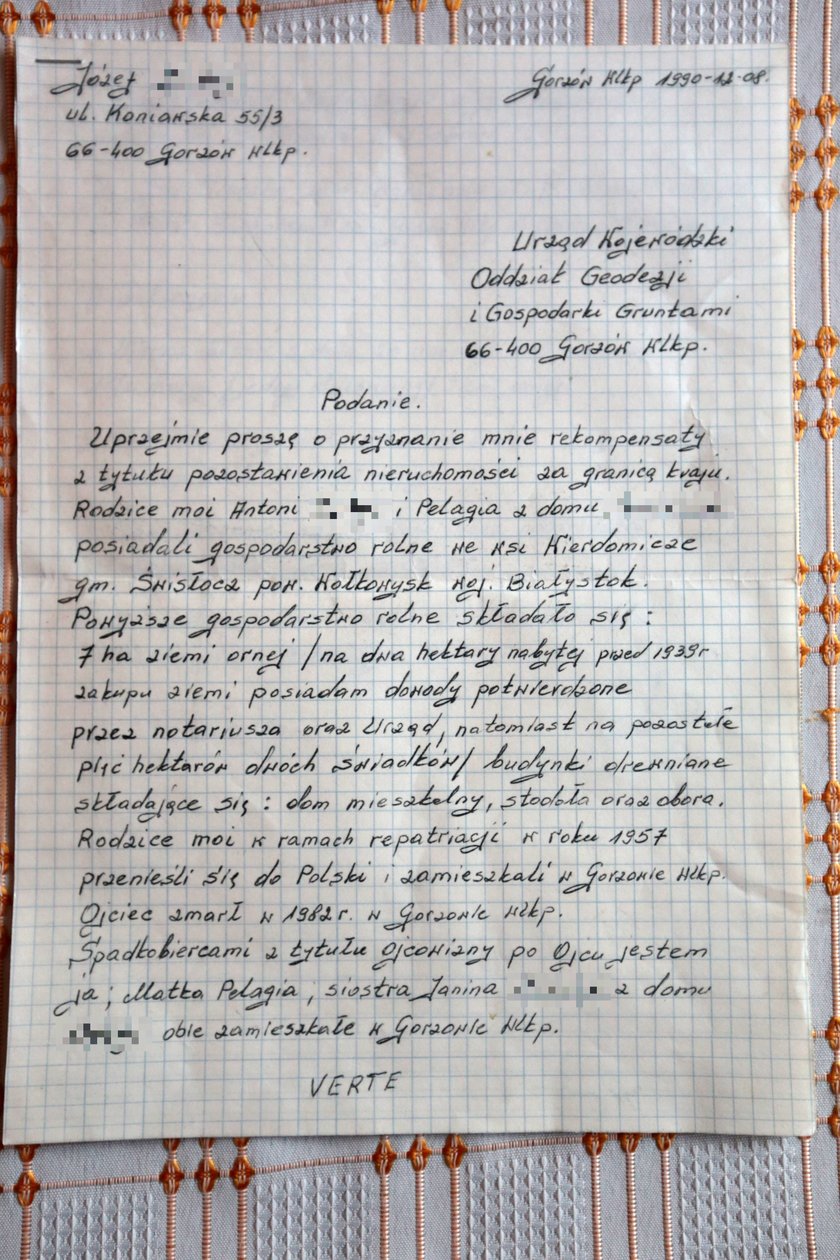 Józef
Gorzów Wlkp 1990-12-08.
ul. Koniawska 55/3
66-400 Gorzów Wlkp.
Urząd Wojewódzki
Oddział Geodezji
i Gospodarki Gruntami
66-400 Gorzów Wlkp.
Podanie.
Uprzejmie proszę o przyznanie mnie rekompensaty
z tytułu pozostawienia nieruchomości za granicą kraju.
Rodzice moi Antoni i Pelagia z domu
posiadali gospodarstwo rolne we wsi Wierdomicze
gm. Świsłocz pow. Wołkowysk woj. Białystok.
Powyższe gospodarstwo rolne składało się:
7 ha ziemi ornej /na dwa hektary nabytej przed 1939r
zakupu ziemi posiadam dowody potwierdzone
przez notariusza oraz Urząd, natomiast na pozostałe
pięć hektarów dwóch świadków/ budynki drewniane
składające się: dom mieszkalny, stodoła oraz obora.
Rodzice moi w ramach repatriacji w roku 1957
przenieśli się do Polski i zamieszkali w Gorzowie Wlkp.
Ojciec zmarł w 1982 r. w Gorzowie Wlkp.
Spadkobiercami z tytułu ojcowizny po Ojcu jestem
ja; Matka Pelagia, siostra Janina z domu
obie zamieszkałe w Gorzowie Wlkp.
VERTE